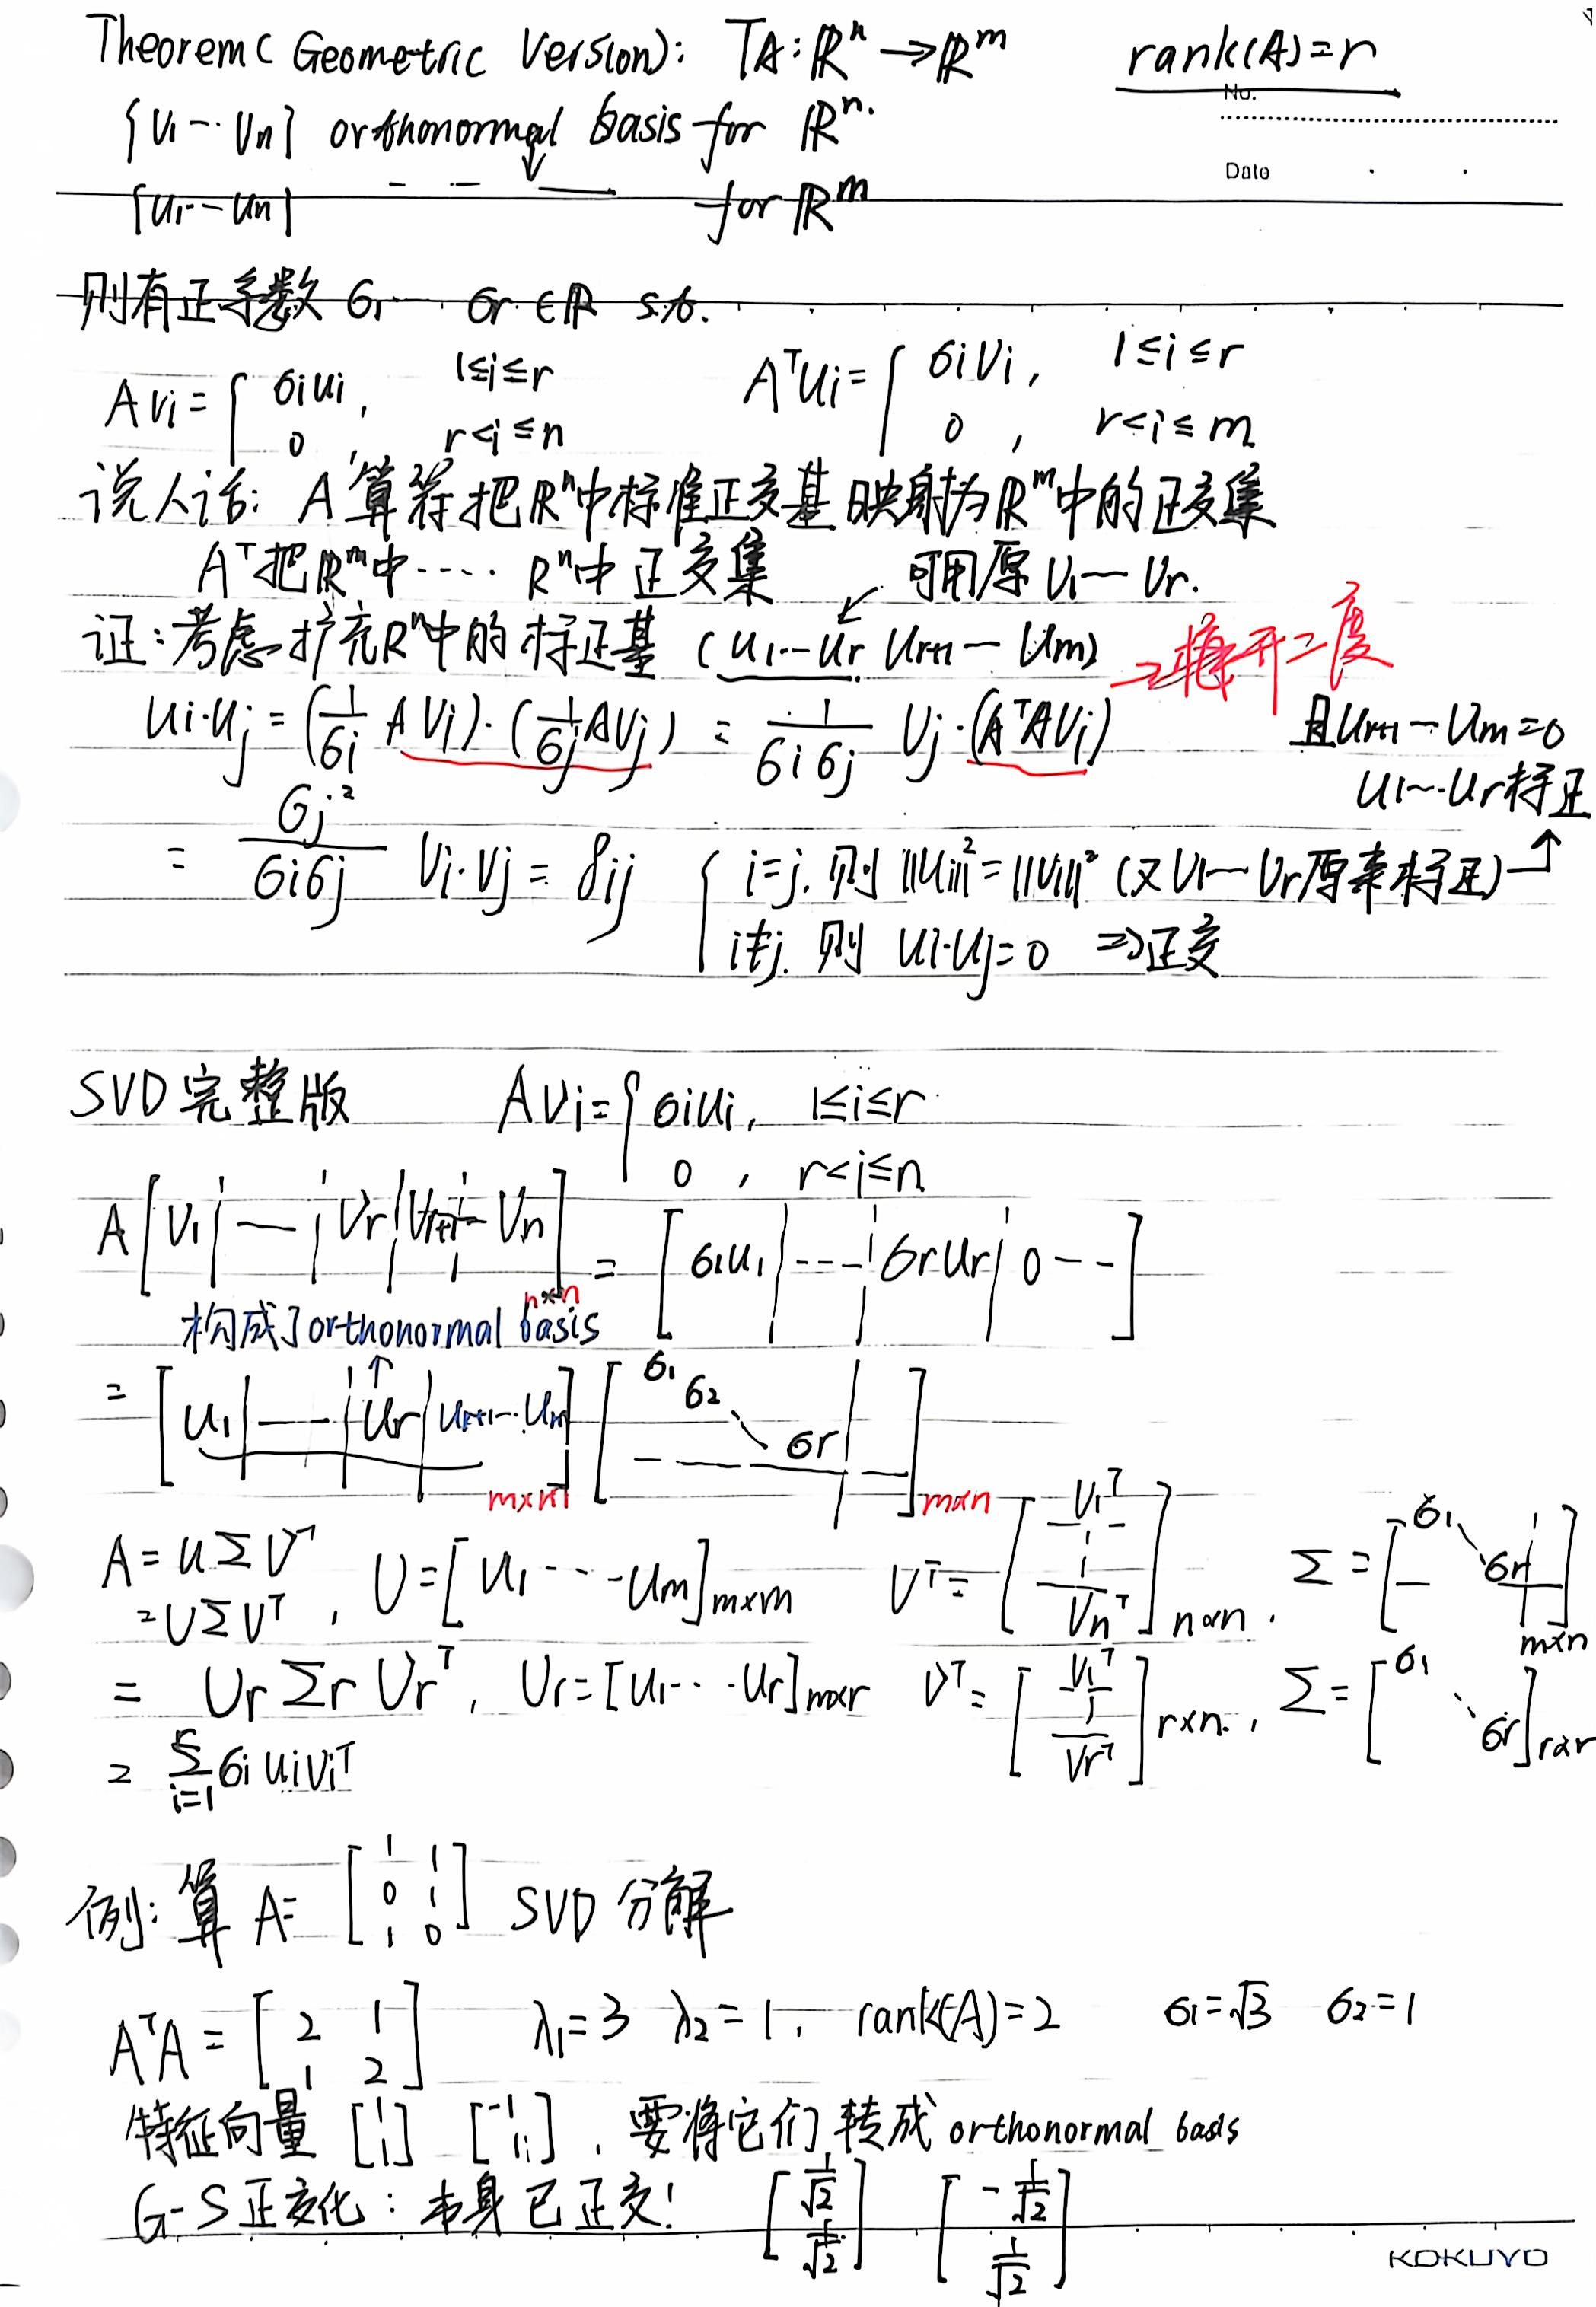 Theorem ( Geometric Version): TA: ℝⁿ → ℝᵐ rank(A)=r
No.
{v₁ ⋯ vₙ} orthonormal basis for ℝⁿ.
Date
{u₁ ⋯ uₙ} — — ↓ —— for ℝᵐ
则有正系数 σ₁ ⋯ σr ∈ ℝ s.t.
Avᵢ = { σᵢuᵢ, 1≤i≤r ; 0, r<i≤n AᵀUᵢ = { σᵢVᵢ, 1≤i≤r ; 0, r<i≤m
说人话: A 算符把 ℝⁿ中标准正交基映射为 ℝᵐ中的正交集
Aᵀ把ℝᵐ中 ⋯⋯ Rⁿ中正交集 ↙ 可用原 U₁ — Ur.
证:考虑扩充Rⁿ中的标正基 (u₁ ⋯ ur ur+1 — Um) → 开二度
uᵢ·uⱼ = (1/σᵢ AVᵢ)·(1/σⱼ AVⱼ) = 1/(σᵢσⱼ) Vⱼ·(AᵀAVᵢ) 且ur+1 ⋯ Um=0
u₁ ⋯ ur 标正
= σⱼ²/(σᵢσⱼ) Vᵢ·Vⱼ = δij { i=j. 则 ||uᵢ||² = ||vᵢ||² (又V₁ — Vr原来标正) ↑
i≠j. 则 uᵢ·uⱼ=0 ⇒ 正交
SVD完整版 AVᵢ = { σᵢuᵢ, 1≤i≤r
0 , r<i≤n
A [V₁ | — | Vr | Vr+1 — Vn] n×n = [σ₁u₁ | --- | σrUr | 0 --]
构成了orthonormal basis
= [u₁ | —— | Ur | ur+1 ⋯ Um] m×m [σ₁ σ₂ ⋱ σr] m×n
A = UΣVᵀ
= UΣVᵀ , U = [u₁ ⋯ um] m×m Vᵀ = [V₁ᵀ ⋮ Vnᵀ] n×n , Σ = [σ₁ ⋱ σr] m×n
= Ur Σr Vrᵀ, Ur = [u₁ ⋯ ur] m×r Vᵀ = [V₁ᵀ ⋮ Vrᵀ] r×n. , Σ = [σ₁ ⋱ σr] r×r
= Σ_{i=1}^{r} σᵢ uᵢvᵢᵀ
例: 算 A = [1 1; 0 1; 1 0] SVD 分解
AᵀA = [2 1; 1 2] λ₁=3 λ₂=1, rank(A)=2 σ₁=√3 σ₂=1
特征向量 [1; 1] [-1; 1] , 要将它们转成 orthonormal basis
G-S正交化: 本身已正交! [1/√2; 1/√2] [-1/√2; 1/√2]
KOKUYO